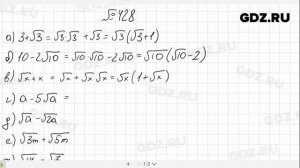 GDZ.RU
№428
а) 3+√3 = √3·√3 + √3 = √3(√3+1)
б) 10-2√10 = √10 √10 -2√10 = √10(√10-2)
в) √x+x = √x+√x√x = √x(1+√x)
г) a-5√a =
д) √a-√2a
е) √3m+√5m
GDZ.RU